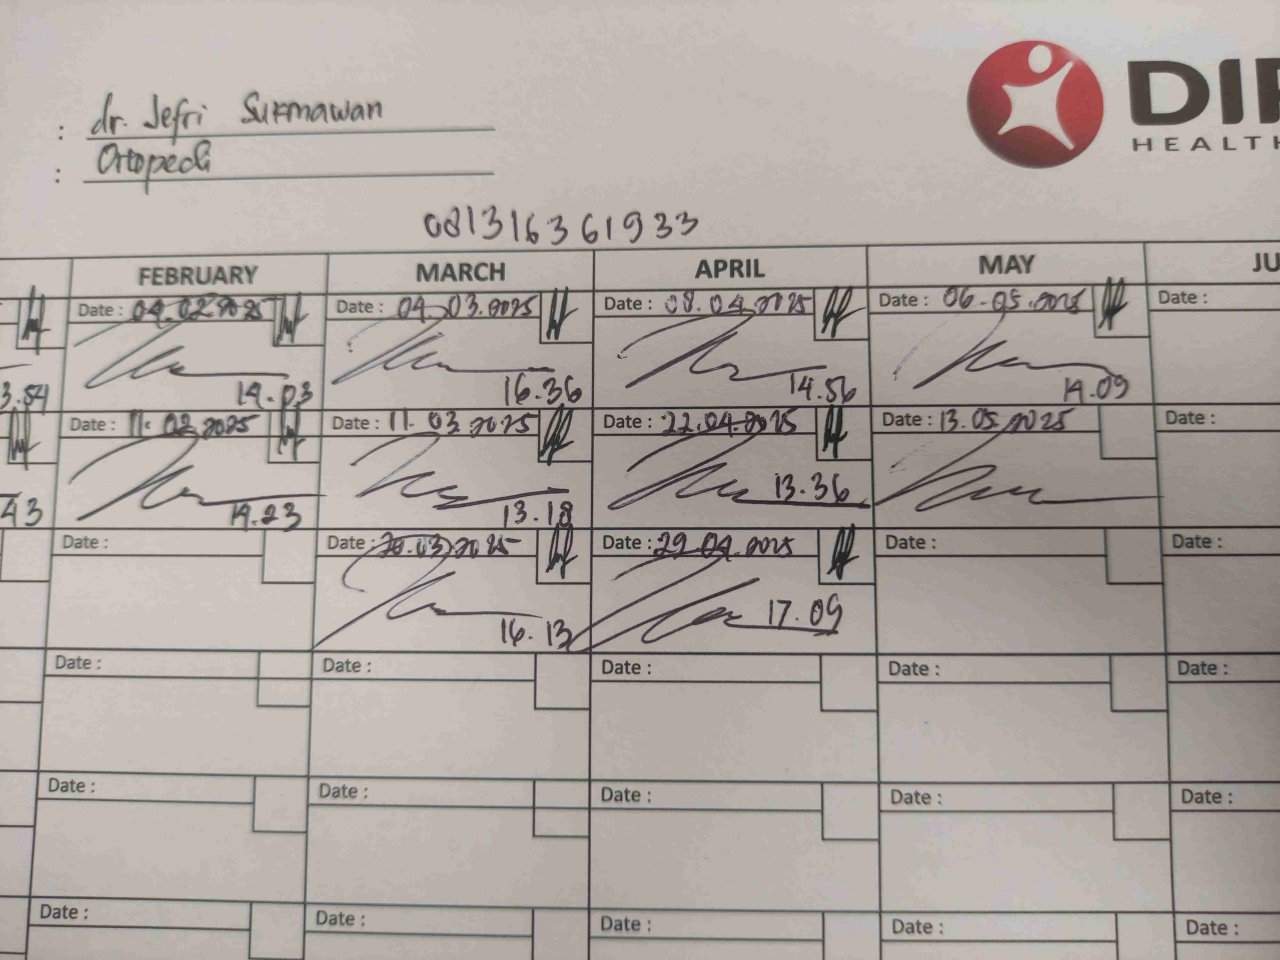 : dr. Jefri Sukmawan
: Ortopedi
DIP
HEALTH
081316361933
FEBRUARY MARCH APRIL MAY JU
Date : 04.02.2025 Date : 04.03.2025 Date : 08.04.2025 Date : 06.05.2025 Date :
3.54 14.03 16.36 14.56 14.09
Date : 11.02.2025 Date : 11.03.2025 Date : 22.04.2025 Date : 13.05.2025 Date :
43 14.23 13.18 13.36
Date : Date : 20.03.2025 Date : 29.04.2025 Date : Date :
16.13 17.09
Date : Date : Date : Date : Date :
Date : Date : Date : Date : Date :
Date : Date : Date : Date : Date :